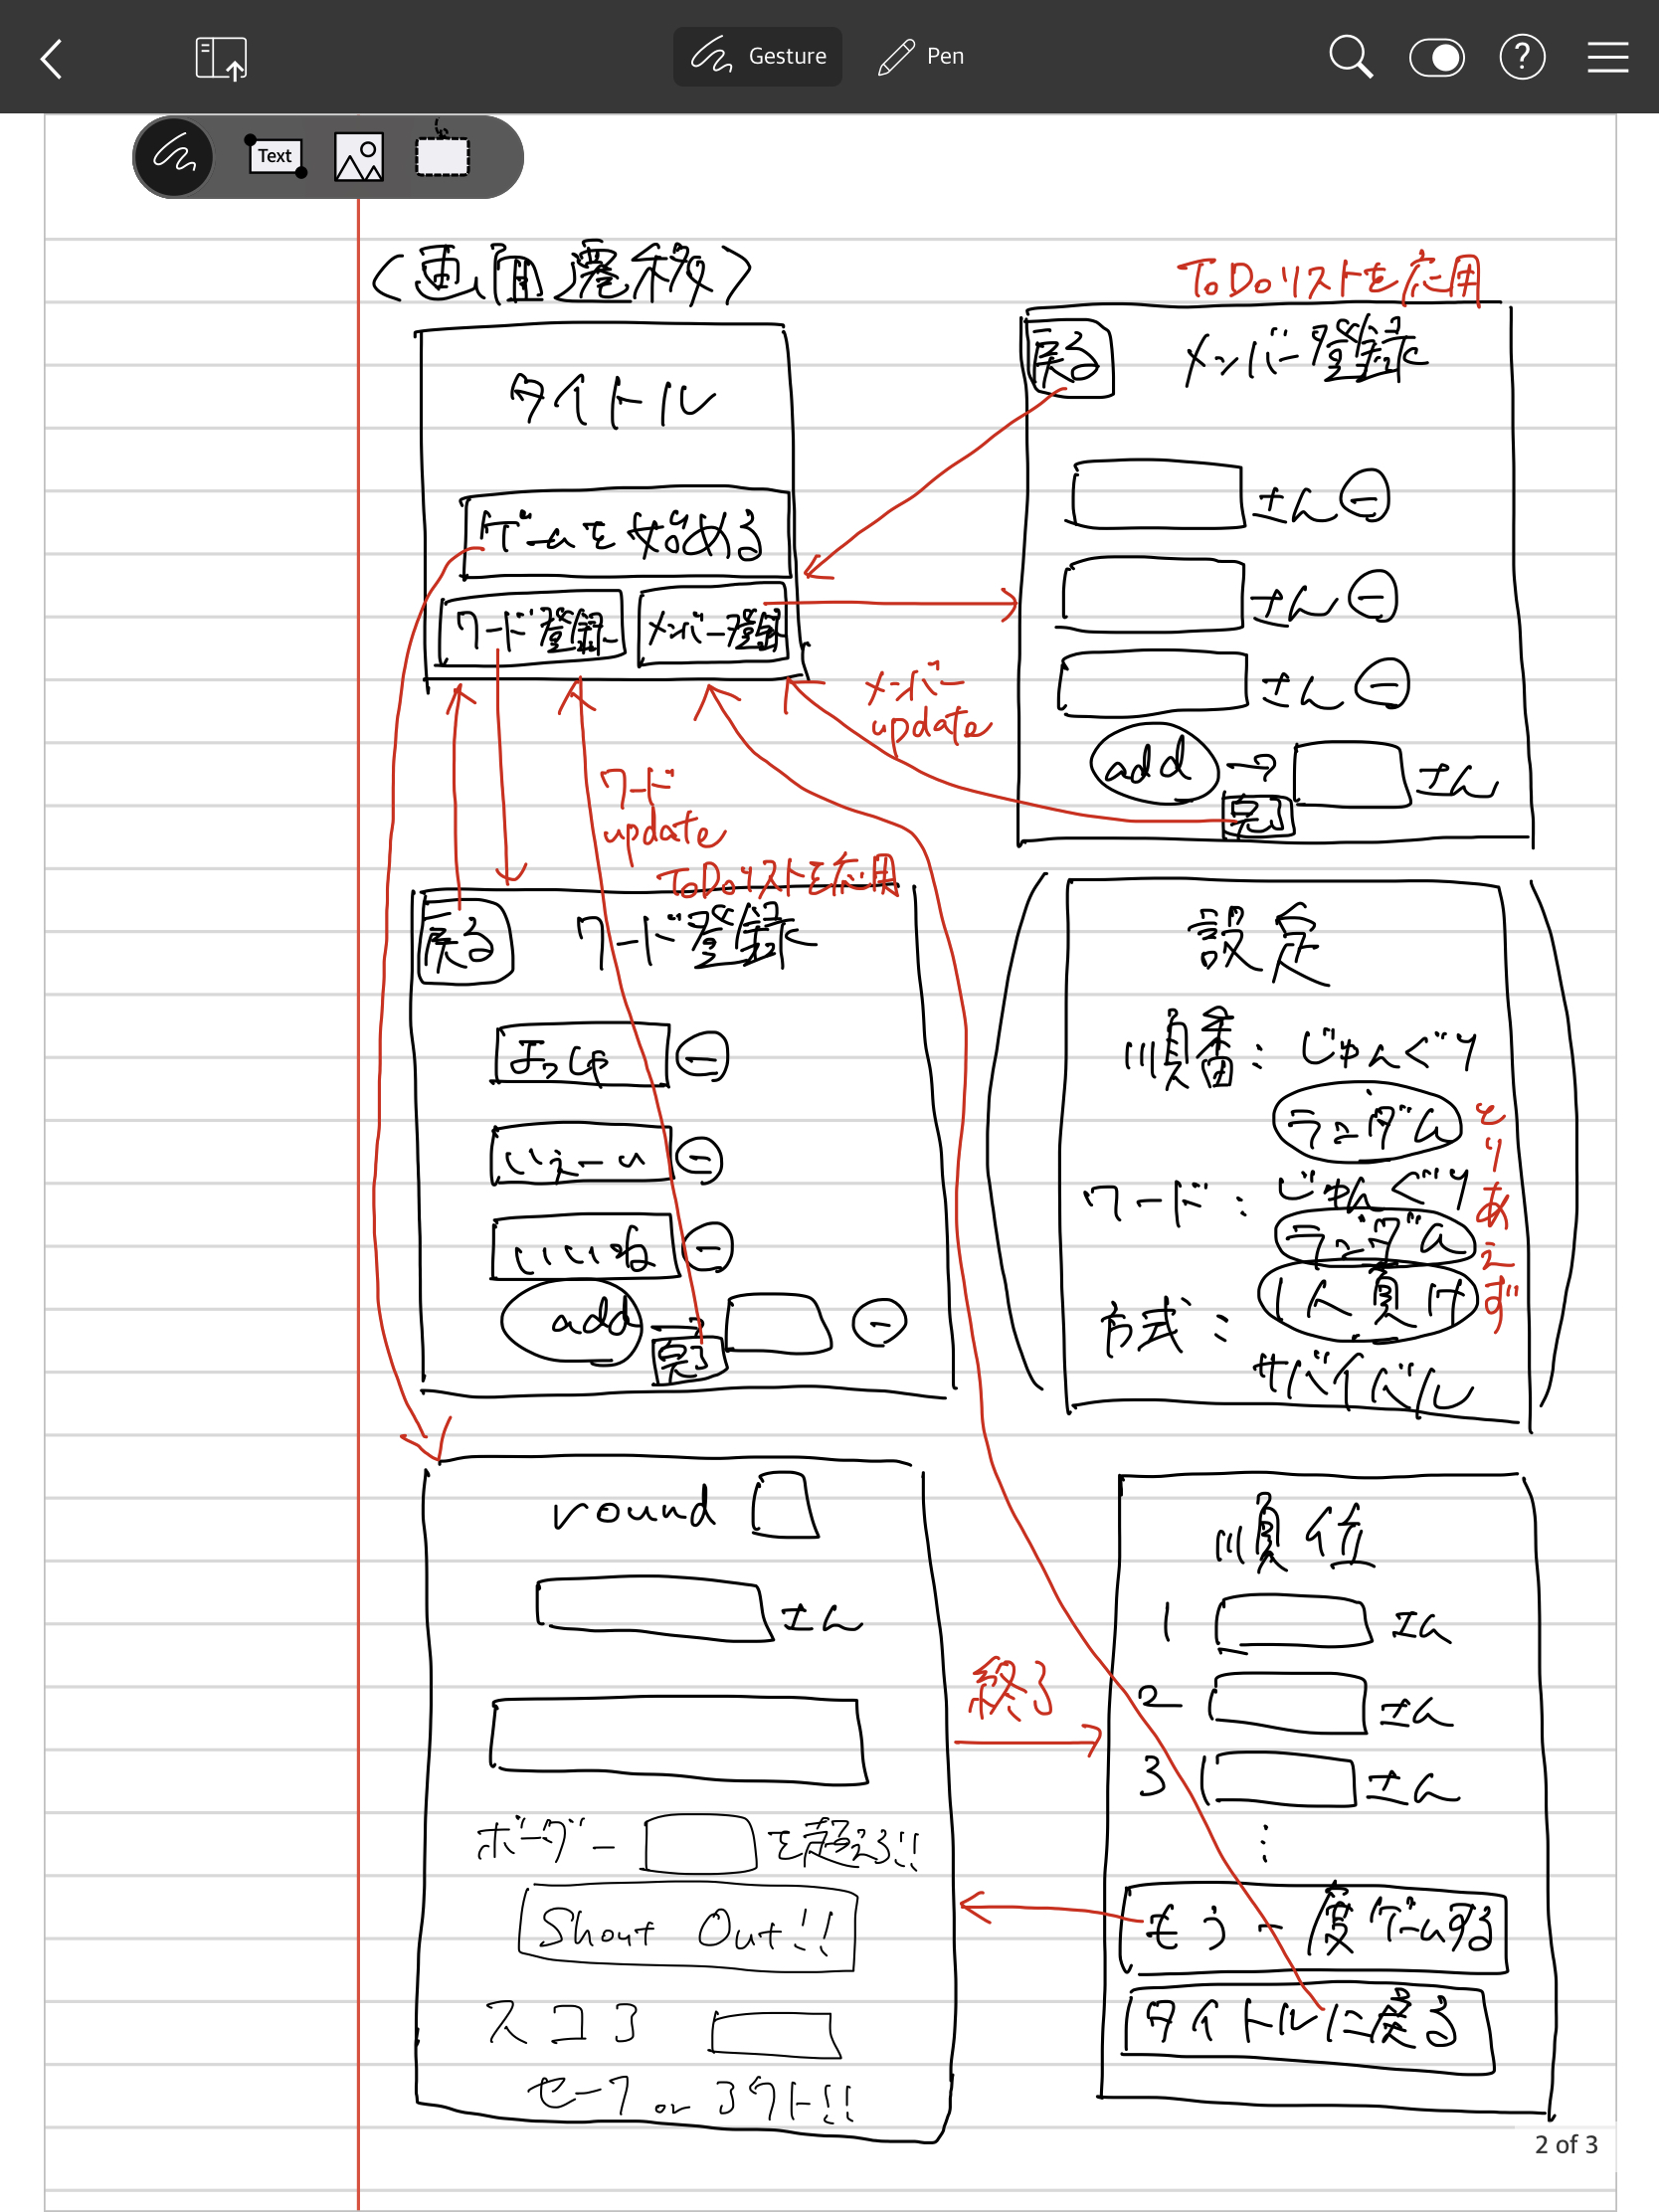 Gesture
Pen
Text
〈画面遷移〉
ToDoリストを応用
タイトル
ゲームを始める
ワード登録
メンバー登録
戻る
メンバー登録
さん
さん
さん
add → さん
完了
メンバー
update
ワード
update
ToDoリストを応用
戻る
ワード登録
いぇーい
いいね
add →
完了
設定
順番: じゅんぐり
ランダム
ワード: じゅんぐり
ランダム
方式: 1人負け
サバイバル
とりあえず
round
さん
ボーダー を超えろ!!
Shout Out!!
スコア
セーフ or アウト!!
終了
順位
1 さん
2 さん
3 さん
⋮
もう一度ゲームする
タイトルに戻る
2 of 3